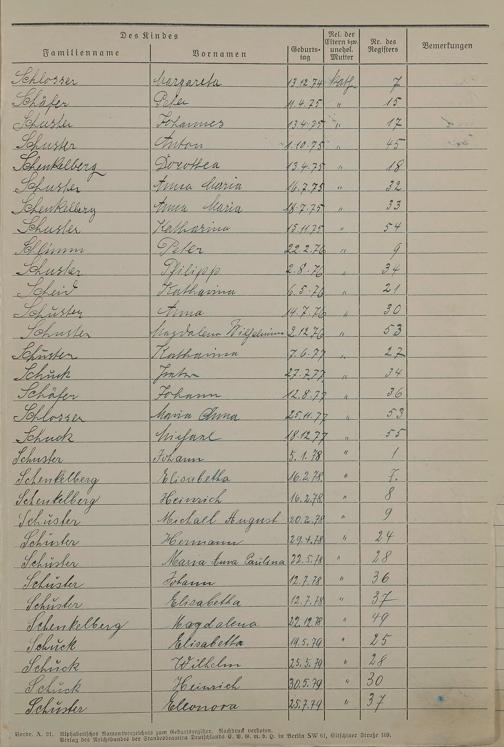 Des Kindes
Familienname Vornamen Geburts-tag Rel. der Eltern bzw. unehel. Mutter Nr. des Registers Bemerkungen
Schlosser Margareta 13.12.74 kath. 7
Schäfer Peter 11.4.75 " 15
Schuster Johannes 13.4.75 " 17
Schuster Anton 1.10.75 " 45
Schenkelberg Dorothea 13.4.75 " 18
Schuster Anna Maria 16.7.75 " 32
Schenkelberg Anna Maria 18.7.75 " 33
Schuster Katharina 15.11.75 " 54
Peter 22.2.76 " 9
Schuster Philipp 2.8.76 " 34
Scheid Katharina 6.5.76 " 21
Schuster Anna 14.7.76 " 30
Schuster Magdalena Wilhelmine 2.12.76 " 53
Schuster Katharina 7.6.77 " 27
Schuck 27.7.77 " 34
Schäfer Johann 12.8.77 " 36
Schlosser Maria Anna 25.11.77 " 53
Schuck Michael 18.12.77 " 55
Schuster Johann 5.1.78 " 1
Schenkelberg Elisabetha 16.2.78. " 7.
Schenkelberg Heinrich 16.2.78. " 8
Schuster Michael August 20.2.78 " 9
Schuster Hermann 29.4.78 " 24
Schuster Maria Anna Paulina 22.5.78 " 28
Schuster Johann 12.7.78 " 36
Schuster Elisabetha 12.7.78 " 37
Schenkelberg Magdalena 22.12.78 " 49
Schuck Elisabetha 19.5.79 " 25
Schuck Wilhelm 25.5.79 " 28
Schuck Heinrich 30.5.79 " 30
Schuster Eleonora 25.7.79 " 37
Vordr. A. 21. Alphabetisches Namensverzeichnis zum Geburtsregister. Nachdruck verboten.
Verlag des Reichsbundes der Standesbeamten Deutschlands E. V. G. m. b. H. in Berlin SW 61, Gitschiner Straße 109.